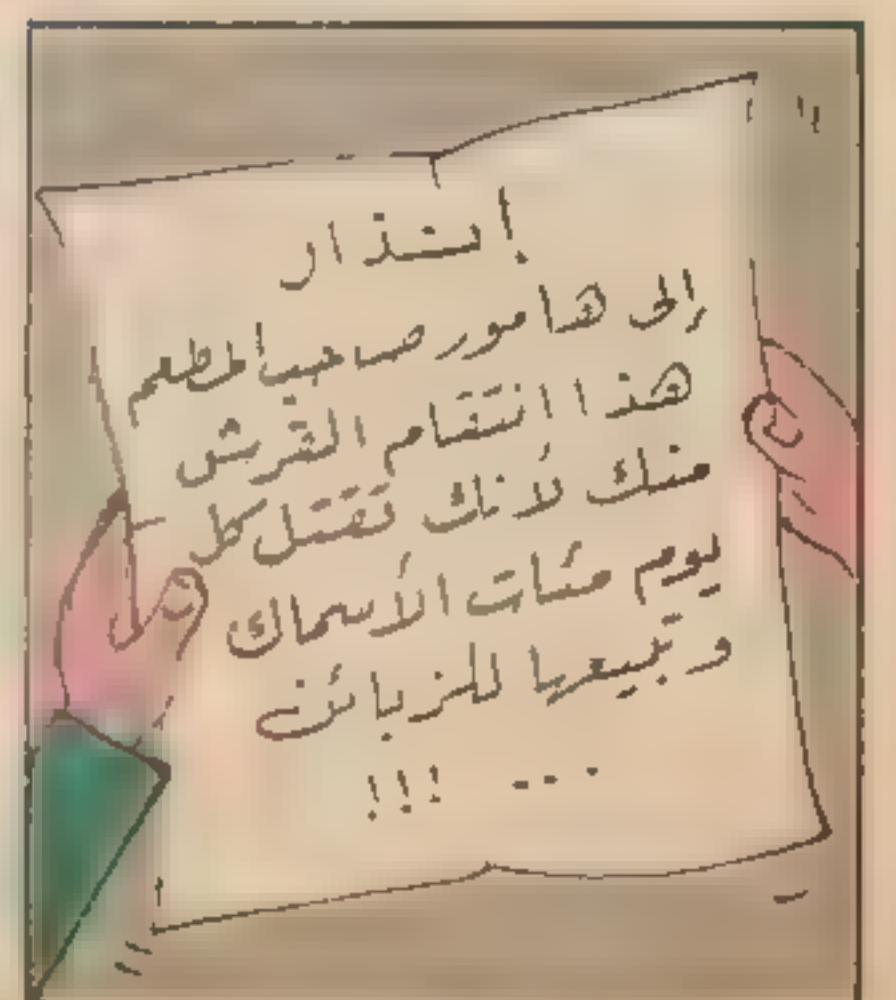 إنذار
إلى هامور صاحب المطعم
هذا انتقام القرش
منك لأنك تقتل كل
يوم مئات الأسماك
وتبيعها للزبائن
... !!!